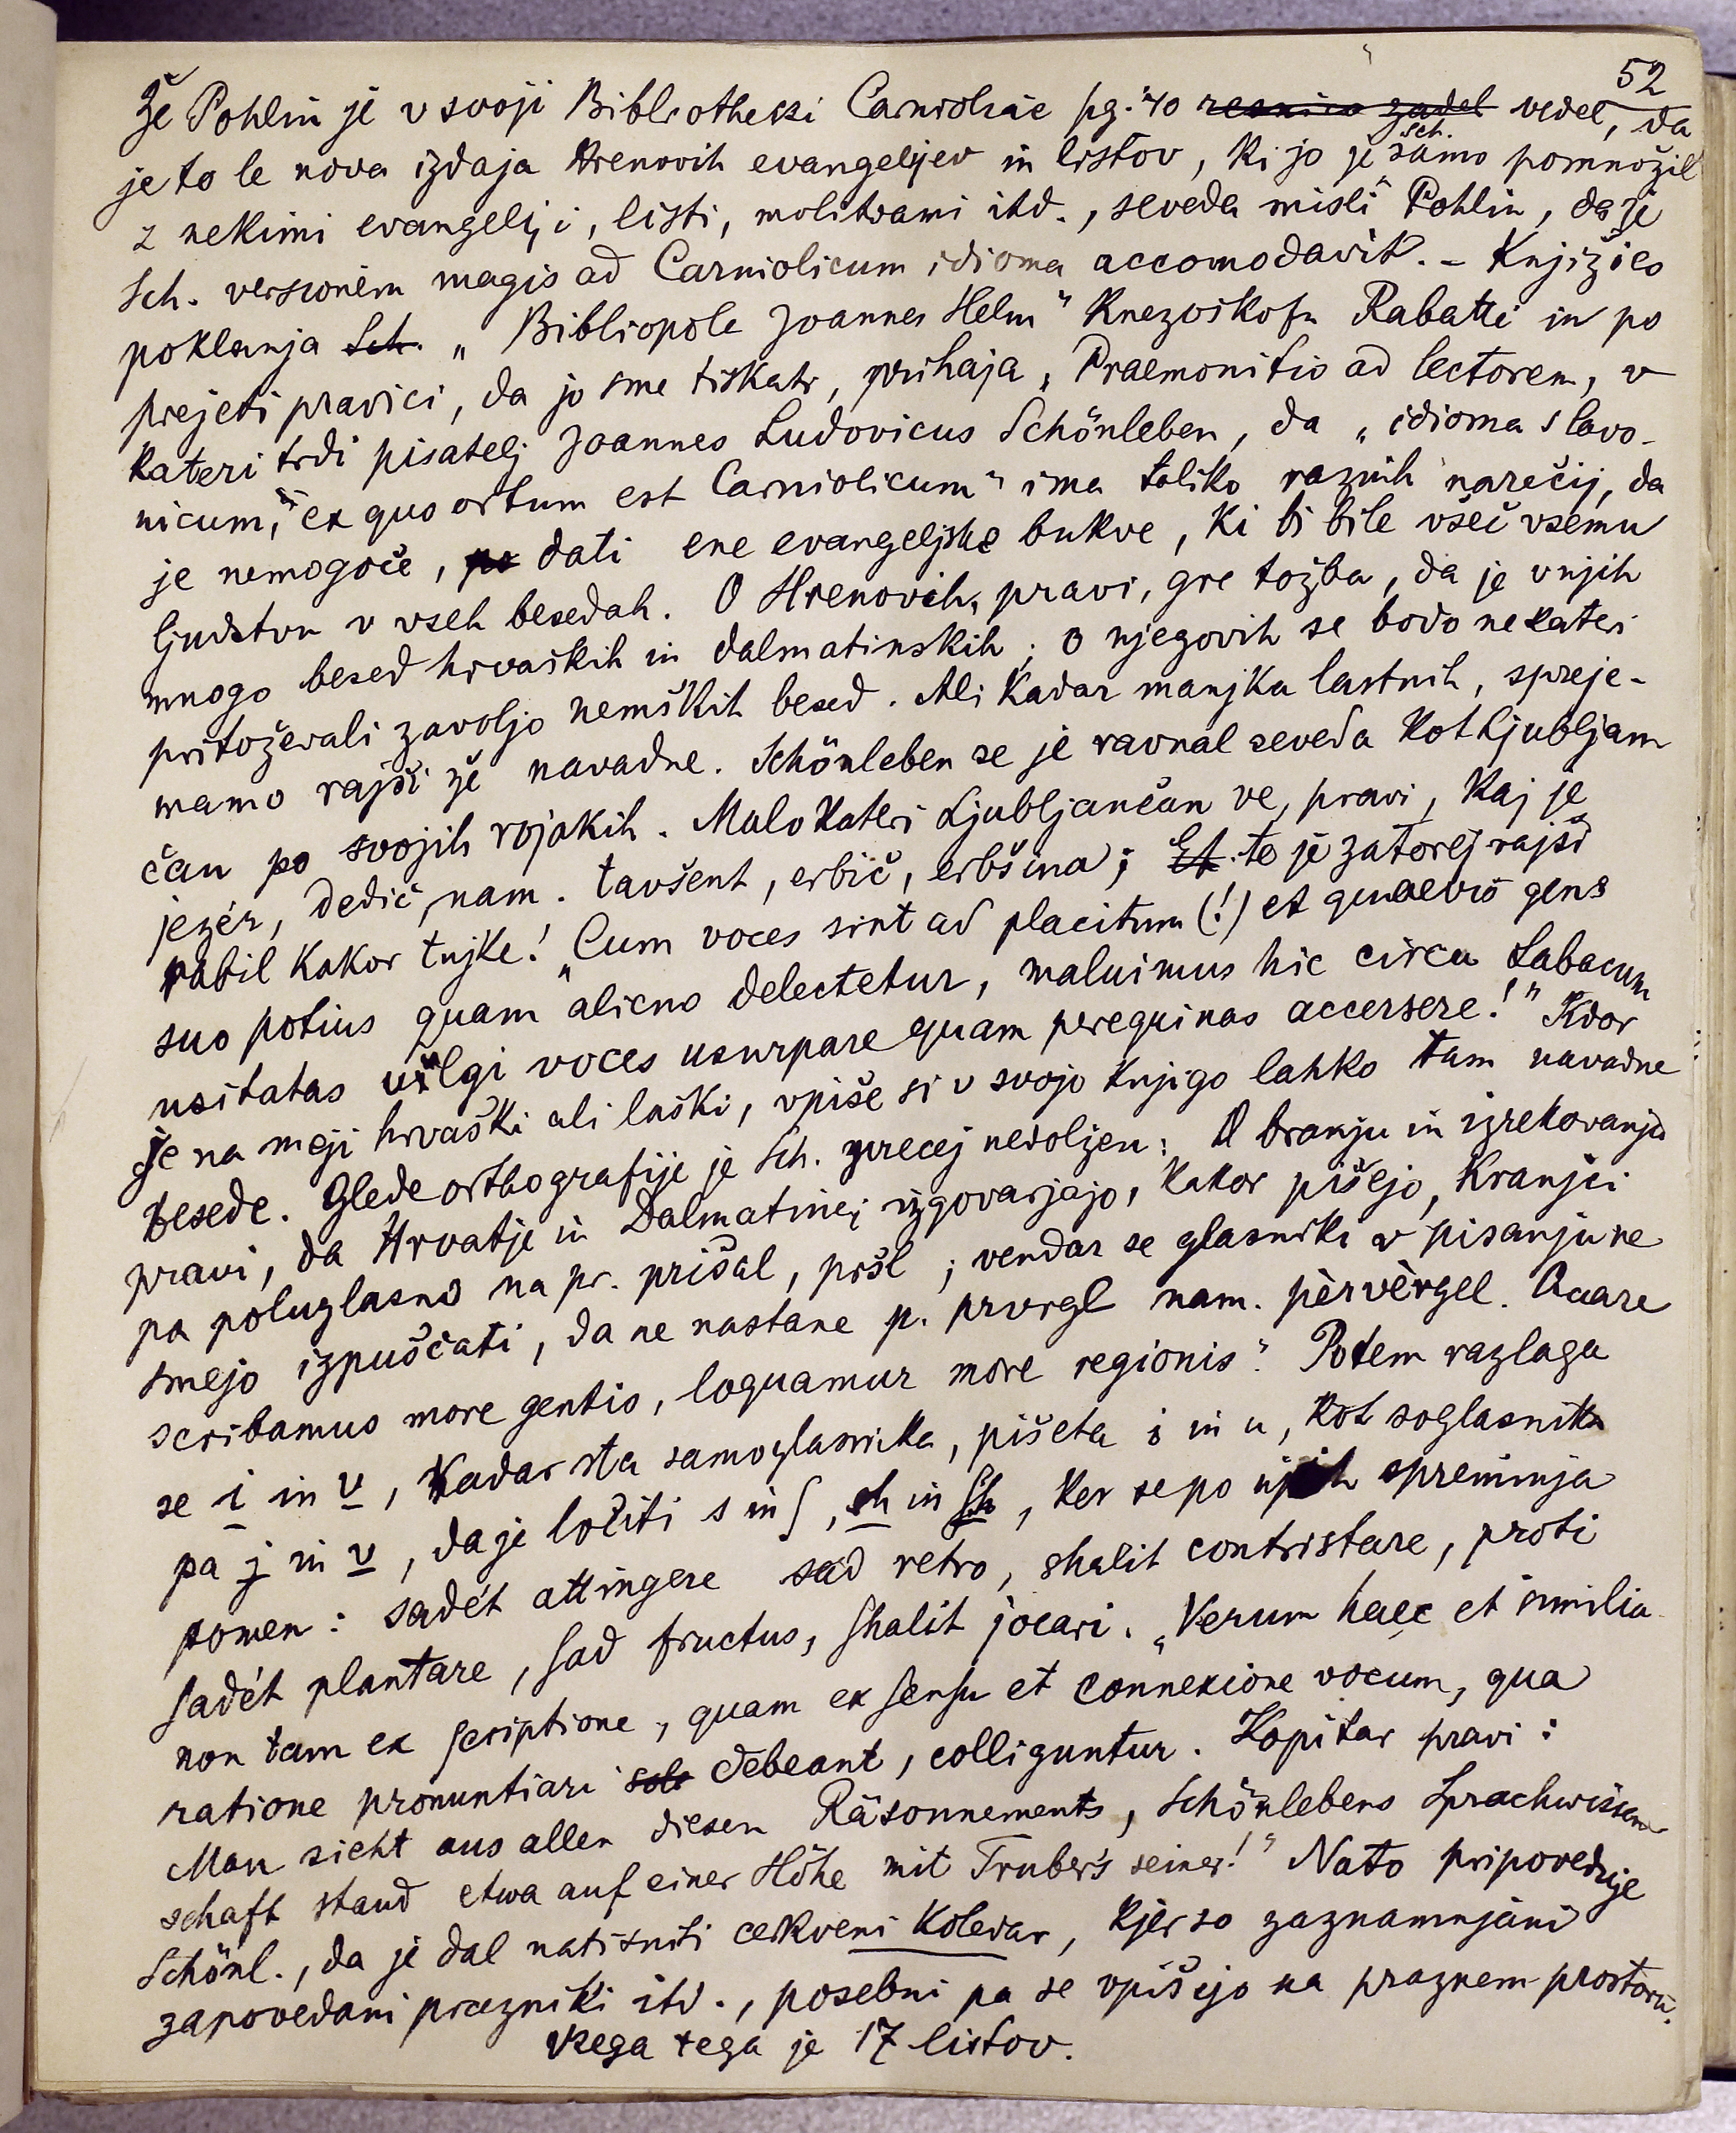 52
Že Pohlin je v svoji Bibliotheki Carnioliae pg. 40 resnico zadel vedel, da
je to le nova izdaja Hrenovih evangelijev in listov, ki jo je Sch. samo pomnožil
z nekimi evangeliji, listi, molitvami itd., seveda misli Pohlin, da je
Sch. versionem magis ad Carniolicum idioma accomodavit. – Knjižico
poklanja Sch. „Bibliopole Joannes Helm" knezoškofu Rabatti in po
prejeti pravici, da jo sme tiskati, prihaja „Praemonitio ad lectorem, v
kateri trdi pisatelj Joannes Ludovicus Schönleben, da „idioma slavo-
nicum," ex quo ortum est Carniolicum" ima toliko raznih narečij, da
je nemogoče, po dati ene evangeljske bukve, ki bi bile všeč vsemu
ljudstvu v vseh besedah. O Hrenovih, pravi, gre tožba, da je v njih
mnogo besed hrvaških in dalmatinskih; o njegovih se bodo nekateri
pritoževali zavoljo nemških besed. Ali kadar manjka lastnih, spreje-
mamo rajši že navadne. Schönleben se je ravnal seveda kot Ljubljan
čan po svojih rojakih. Malokateri Ljubljančan ve, pravi, kaj je
jezér, dedič, nam. tavšent, erbič, erbšina; Et. te je zatorej rajši
rabil kakor tujke! „Cum voces sint ad placitum (!) et quaevis gens
suo potius quam alieno delectetur, maluimus hic circa Labacum
usitatas vulgi voces usurpare quam peregrinas accersere!" Kdor
je na meji hrvaški ali laški, vpiše si v svojo knjigo lahko tam navadne
besede. Glede orthografije je Sch. precej nevoljen: O branju in izrekovanju
pravi, da Hrvatje in Dalmatinci izgovarjajo, kakor pišejo, Kranjci
pa poluglasno na pr. prišal, pršl; vendar se glasniki v pisanju ne
smejo izpuščati, da ne nastane p. prvrgl nam. pèrvèrgel. Quare
scribamus more gentis, loquamur more regionis". Potem razlaga
se i in v, kadar sta samoglasnika, pišeta i in u, kot soglasnika
pa j in v, da je ločiti s in ſ, sh in ſh, ker se po njih spreminja
pomen: sadét attingere sad retro, shalit contristare, proti
ſadét plantare, ſad fructus, ſhalit jocari. „Verum haec et similia
non tam ex ſcriptione, quam ex ſenſu et connexione vocum, qua
ratione pronuntiari sole debeant, colliguntur. Kopitar pravi:
Man sieht aus allen diesen Räsonnements, Schönlebens Sprachwissen
schaft stand etwa auf einer Höhe mit Truber's seiner!" Nato pripoveduje
Schönl., da je dal natisniti cerkveni koledar, kjer so zaznamnjani
zapovedani prazniki itd., posebni pa se vpišejo na praznem prostoru.
Vsega tega je 17 listov.